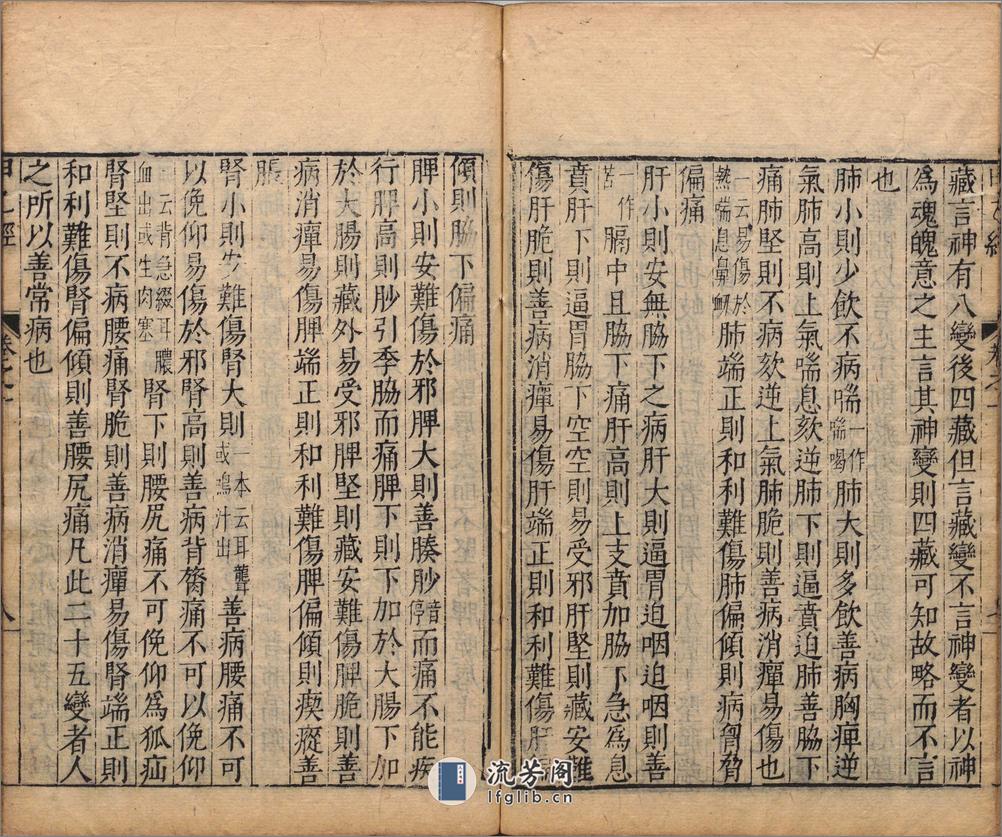 藏言神有八變後四藏但言藏變不言神變者以神
為魂魄意之主言其神變則四藏可知故略而不言
也
肺小則少飲不病喘一作喘喝肺大則多飲善病胸痺逆
氣肺高則上氣喘息欬逆肺下則逼賁迫肺善脇下
痛肺堅則不病欬逆上氣肺脆則善病消癉易傷也
一云易傷於熱喘息鼻衂肺端正則和利難傷肺偏傾則病胷脅
偏痛
肝小則安無脇下之病肝大則逼胃迫咽迫咽則善
一作苦膈中且脇下痛肝高則上支賁加脇下急為息
賁肝下則逼胃脇下空空則易受邪肝堅則藏安難
傷肝脆則善病消癉易傷肝端正則和利難傷肝偏
傾則脇下偏痛
脾小則安難傷於邪脾大則善腠䏚音停而痛不能疾
行脾高則䏚引季脇而痛脾下則下加於大腸下加
於大腸則藏外易受邪脾堅則藏安難傷脾脆則善
病消癉易傷脾端正則和利難傷脾偏傾則瘈瘲善
脹
腎小則安難傷腎大則一本云耳聾或鳴汁出善病腰痛不可
以俛仰易傷於邪腎高則善病背膂痛不可以俛仰
一云背急綴耳膿血出或生肉塞腎下則腰尻痛不可俛仰為狐疝
腎堅則不病腰痛腎脆則善病消癉易傷腎端正則
和利難傷腎偏傾則善腰尻痛凡此二十五變者人
之所以善常病也
甲乙經
卷之一
八
流芳阁
lfglib.cn